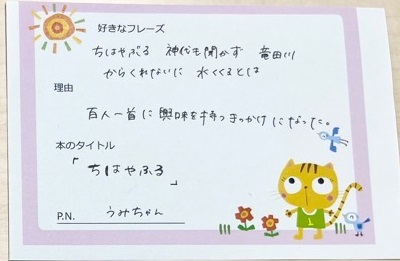 好きなフレーズ
ちはやぶる 神代も聞かず 竜田川
からくれないに 水くくるとは
理由
百人一首に興味を持つきっかけになった。
本のタイトル
「ちはやふる」
P.N. うみちゃん